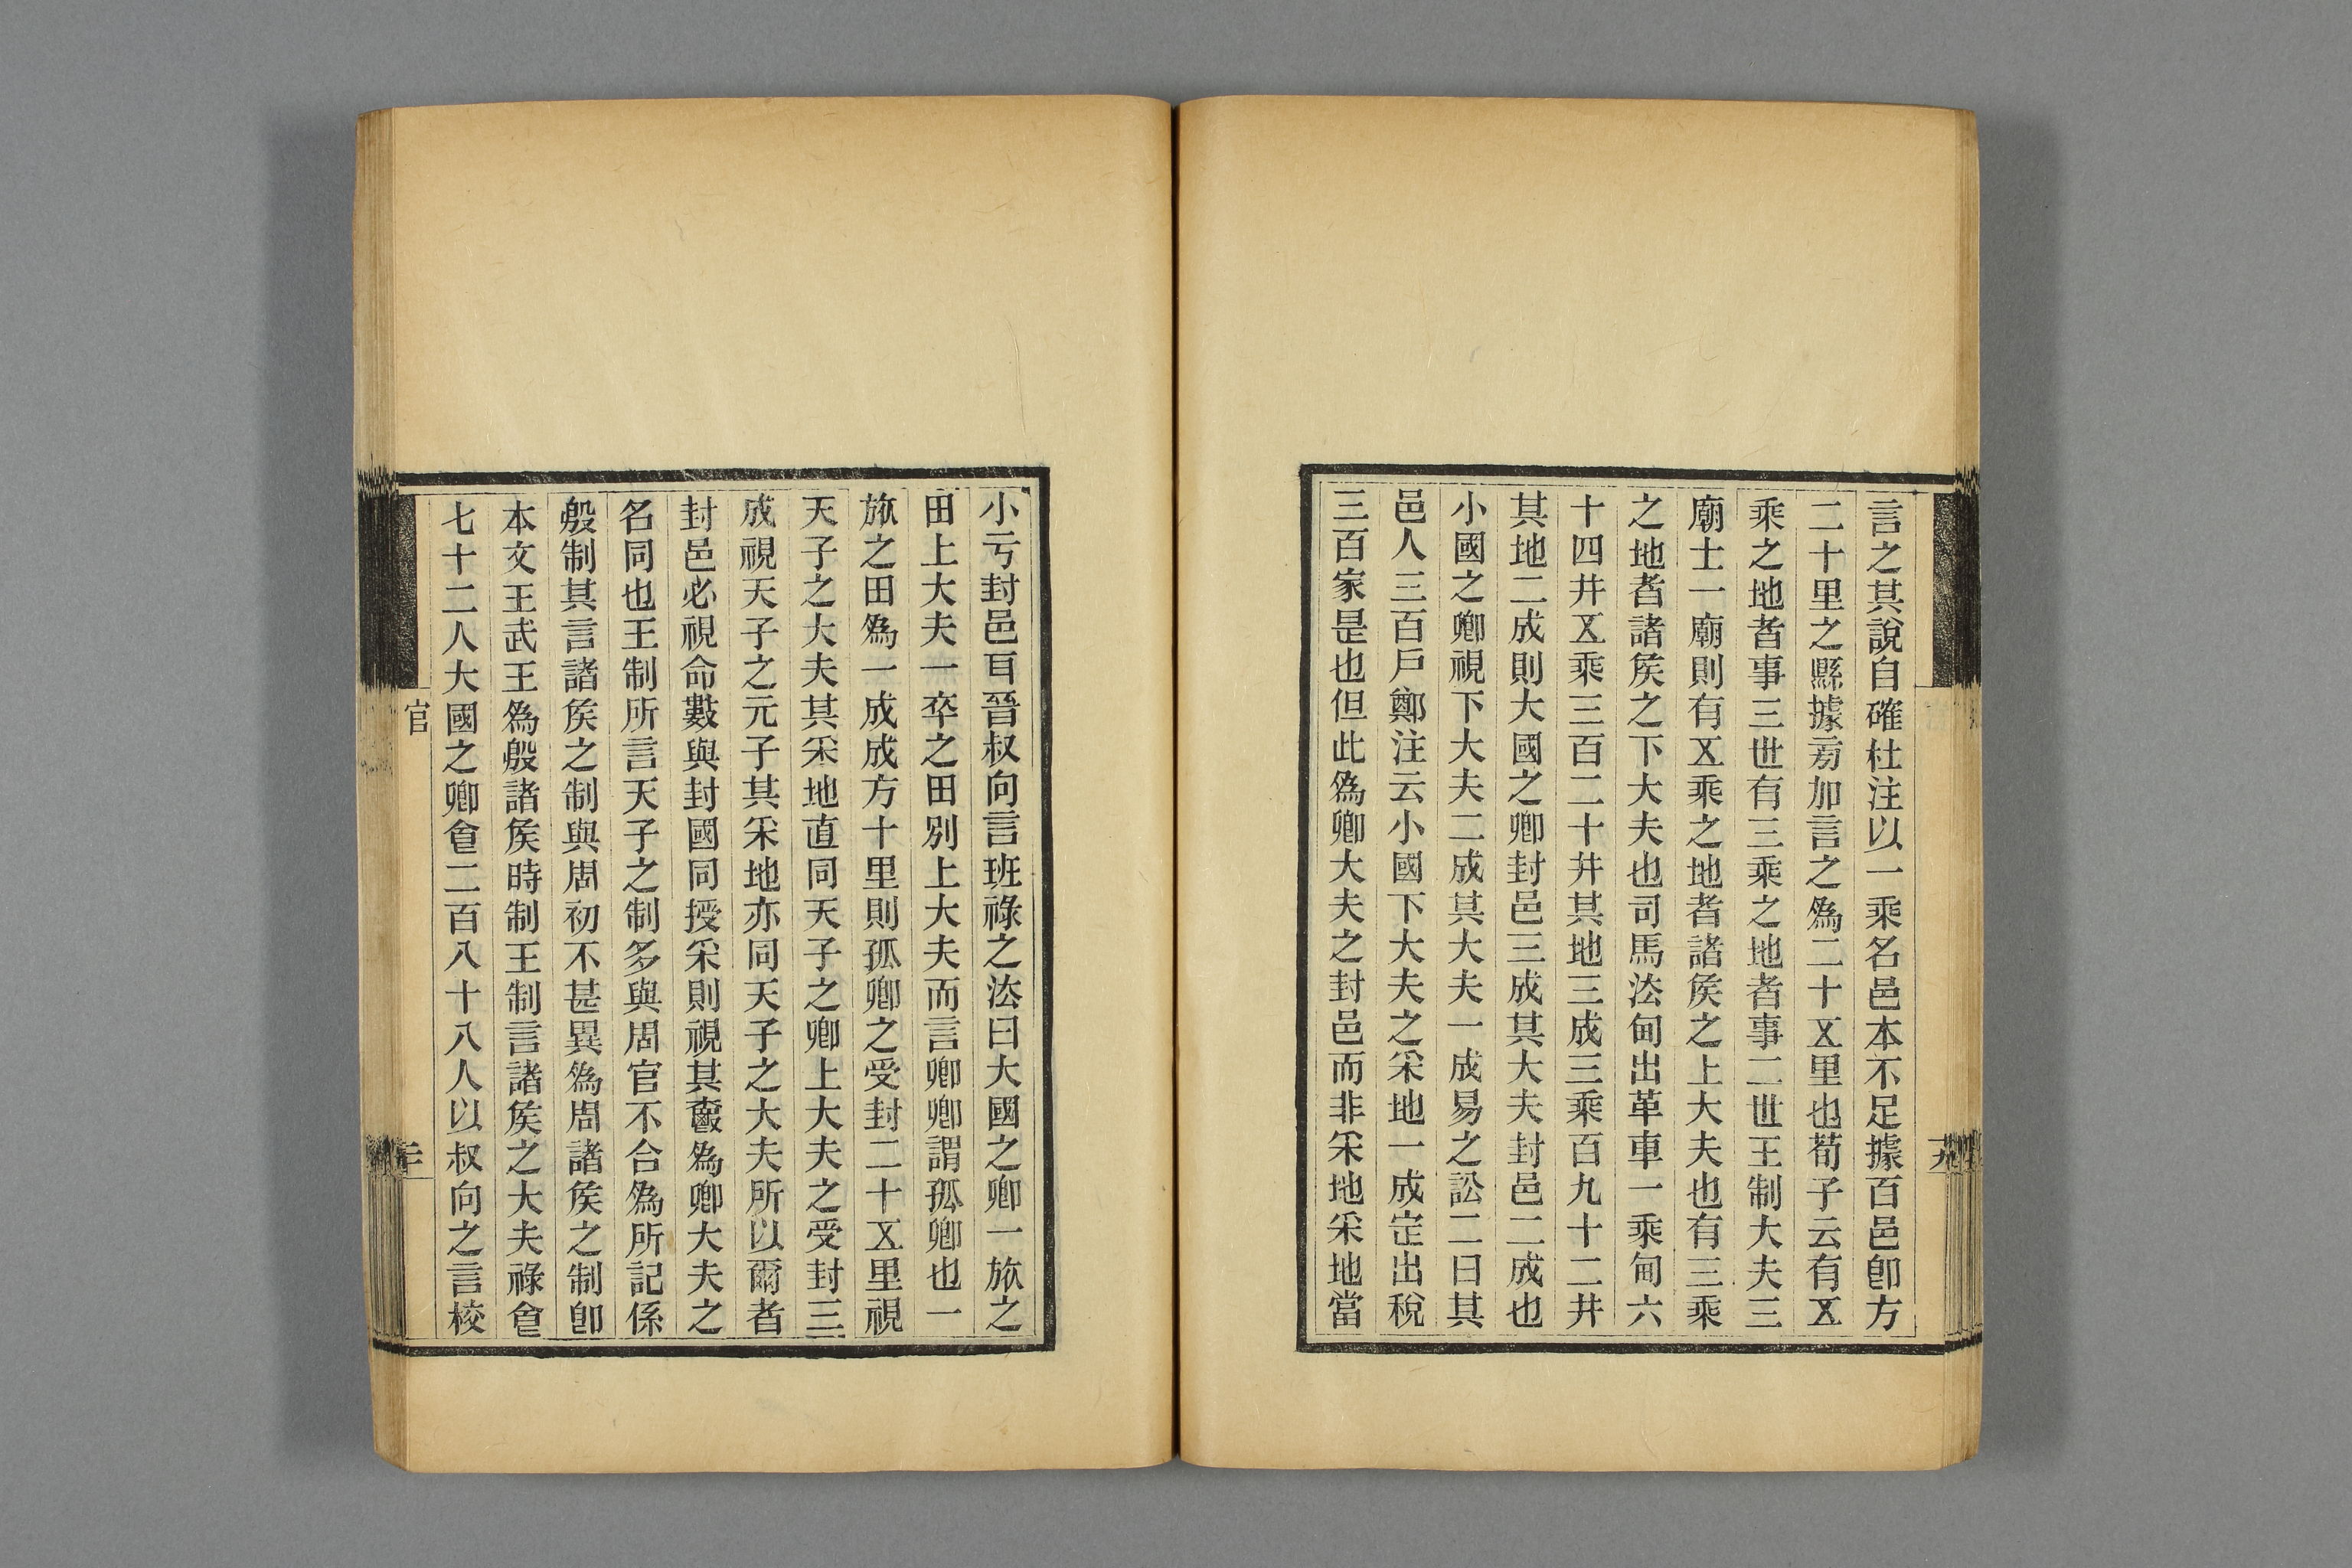 言之其說自確杜注以一乘名邑本不足據百邑卽方
二十里之縣據菊加言之爲二十㐅里也荀子云有㐅
乘之地者事三世有三乘之地者事二世王制大夫三
廟士一廟則有㐅乘之地者諸矦之上大夫也有三乘
之地者諸矦之下大夫也司馬法甸出革車一乘甸六
十四井㐅乘三百二十井其地三成三乘百九十二井
其地二成則大國之卿封邑三成其大夫封邑二成也
小國之卿視下大夫二成其大夫一成易之訟二曰其
邑人三百戶鄭注云小國下大夫之采地一成定出稅
三百家是也但此爲卿大夫之封邑而非采地采地當
小亏封邑耳晉叔向言班祿之法曰大國之卿一旅之
田上大夫一卒之田別上大夫而言卿卿謂孤卿也一
旅之田爲一成成方十里則孤卿之受封二十㐅里視
天子之大夫其采地直同天子之卿上大夫之受封三
成視天子之元子其采地亦同天子之大夫所以爾者
封邑必視命數與封國同授采則視其爵爲卿大夫之
名同也王制所言天子之制多與周官不合爲所記係
殷制其言諸矦之制與周初不甚異爲周諸矦之制卽
本文王武王爲殷諸矦時制王制言諸矦之大夫祿食
七十二人大國之卿食二百八十八人以叔向之言校
官